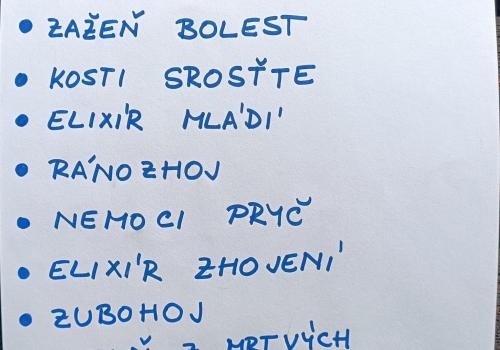 • ZAŽEŇ BOLEST
• KOSTI SROSŤTE
• ELIXÍR MLÁDÍ
• RÁNOZHOJ
• NEMOCI PRYČ
• ELIXÍR ZHOJENÍ
• ZUBOHOJ
Z MRTVÝCH